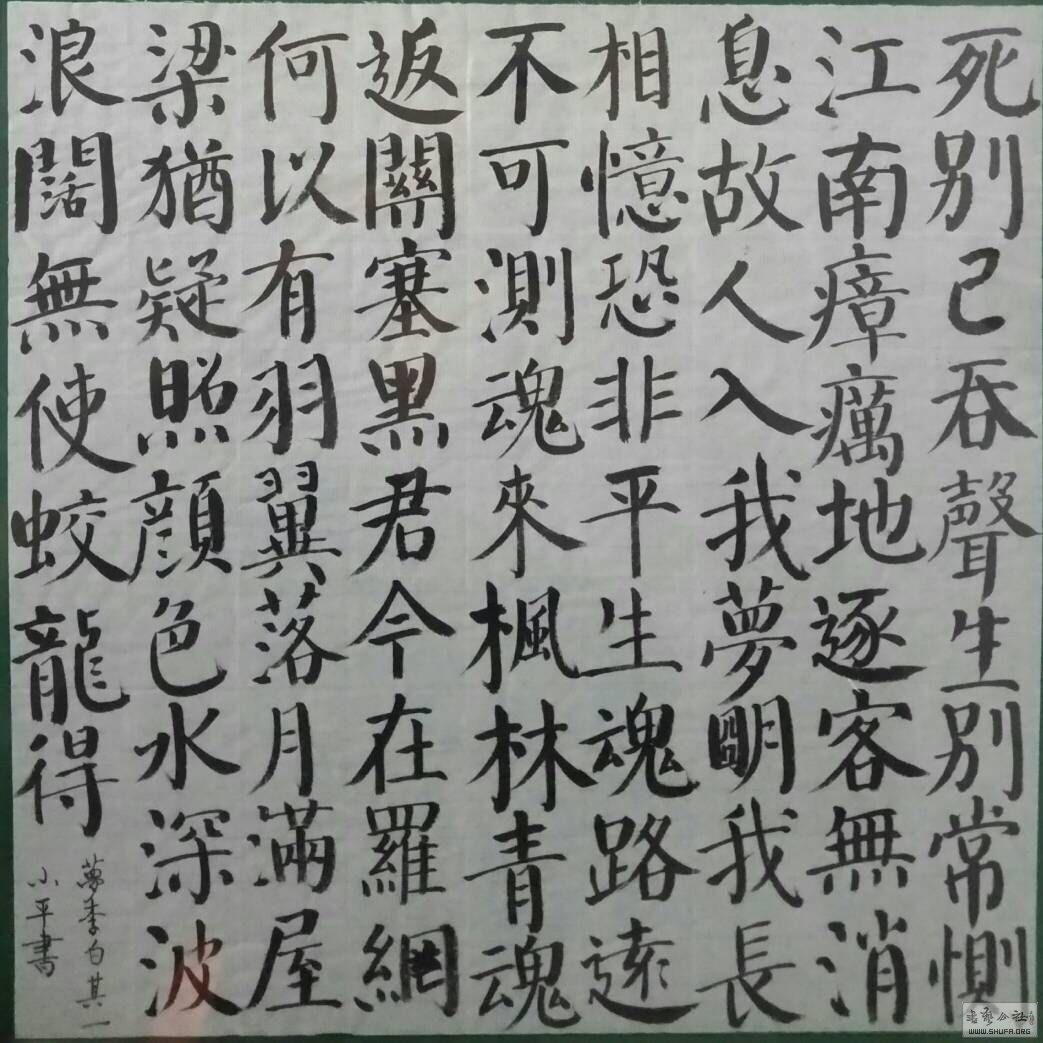 死别已吞聲生别常惻
江南瘴癘地逐客無消
息故人入我夢明我長
相憶恐非平生魂路遠
不可測魂來楓林青魂
返關塞黑君今在羅網
何以有羽翼落月滿屋
梁猶疑照顔色水深波
浪闊無使蛟龍得
夢李白其一
小平書
WWW.SHUFA.ORG